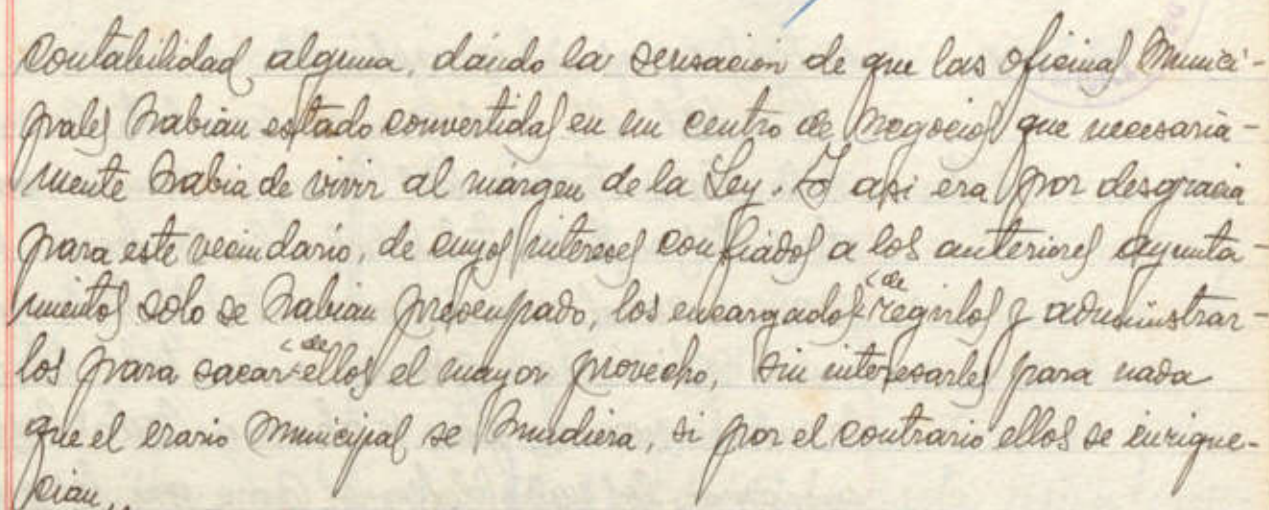 Contabilidad alguna, dándo la sensación de que las oficinas Munici-
pales habian estado convertidas en un centro de negocios que necesaria-
mente habia de vivir al márgen de la Ley. Y asi era por desgracia
para este vecindario, de cuyos intereses confiados a los anteriores ayunta-
mientos solo se habian preocupado, los encargados de regirlos y administrar-
los para sacar de ellos el mayor provecho, sin interesarles para nada
que el erario Municipal se hundiera, si por el contrario ellos se enrique-
cian,